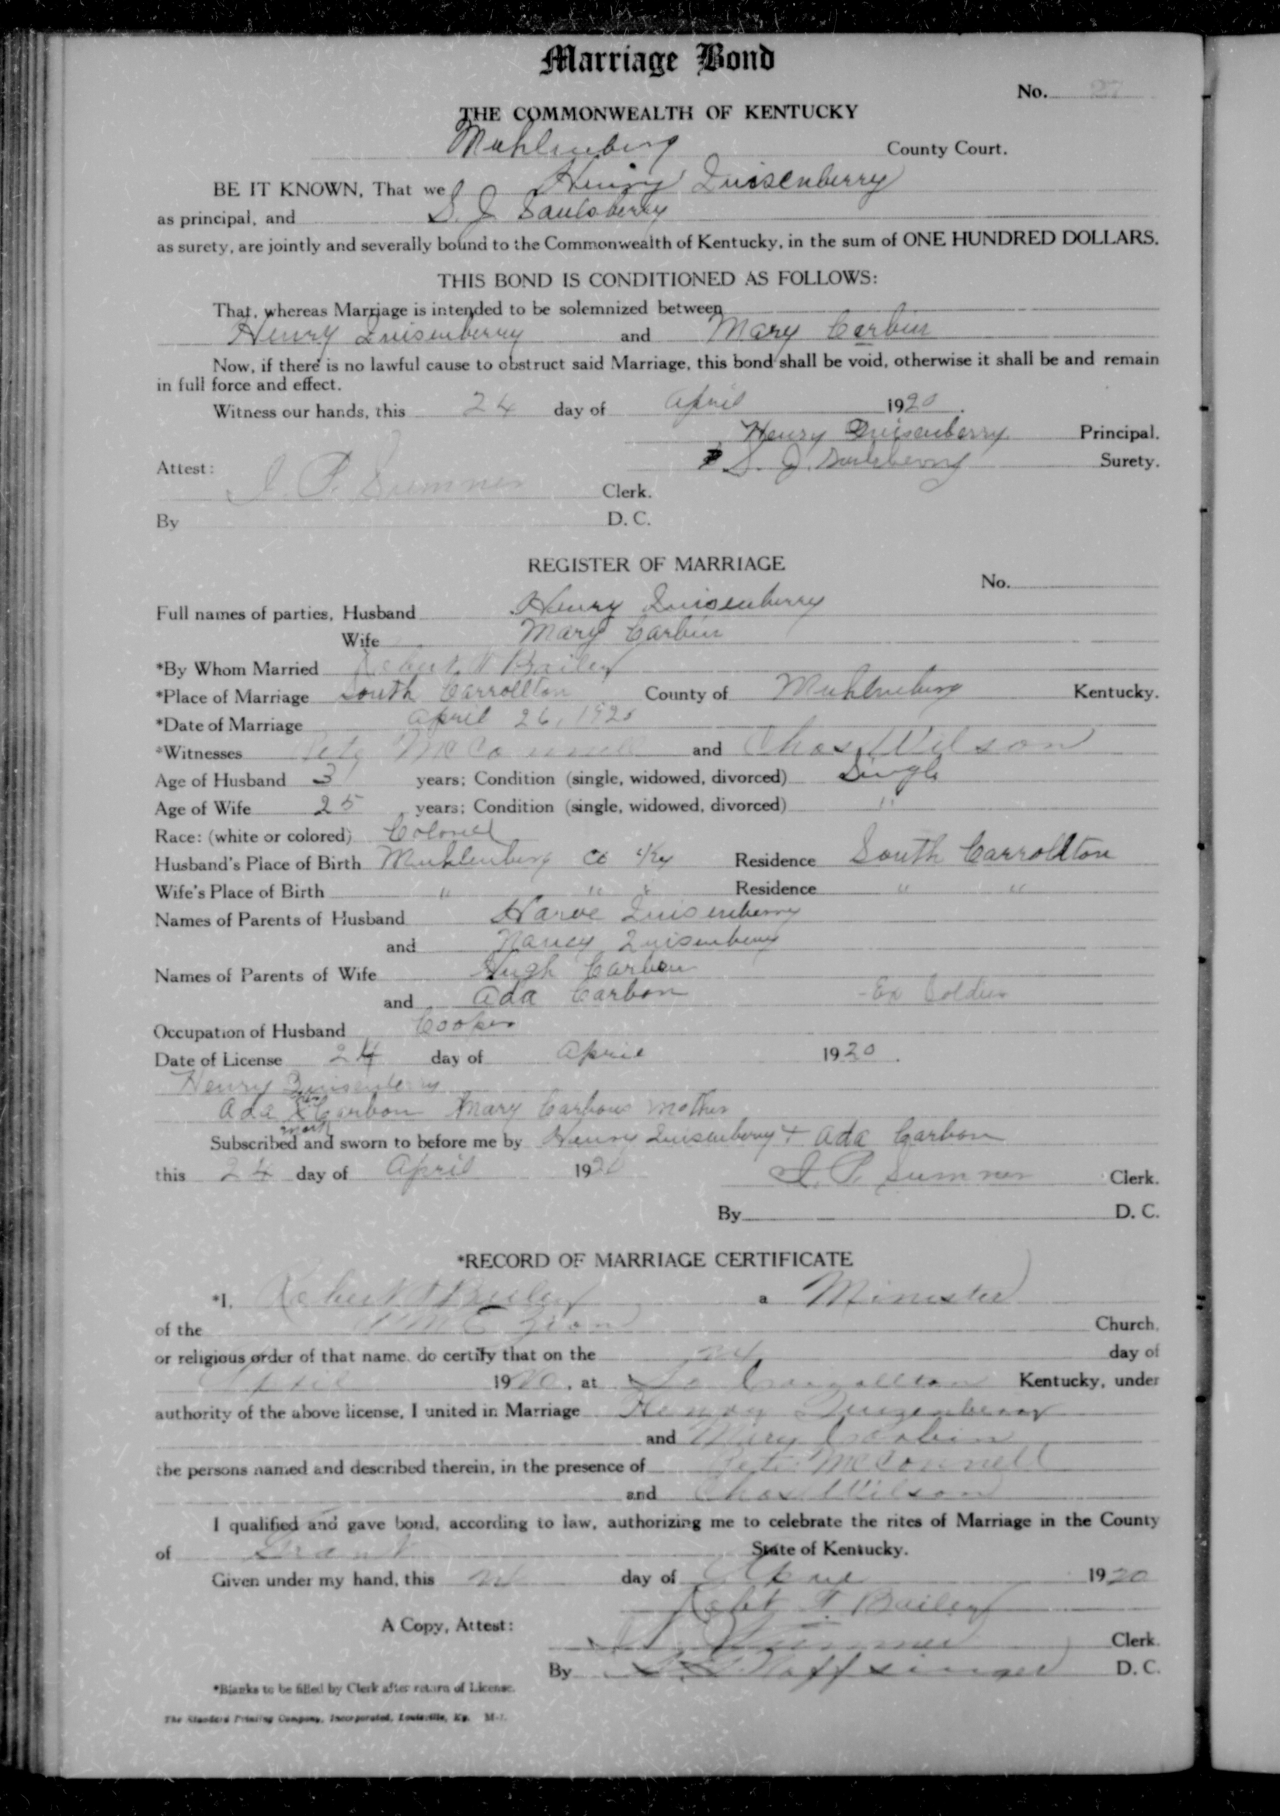 Marriage Bond
No. 27
THE COMMONWEALTH OF KENTUCKY
Muhlenberg County Court.
BE IT KNOWN, That we Henry Quisenberry
as principal, and S. J. Saulsberry
as surety, are jointly and severally bound to the Commonwealth of Kentucky, in the sum of ONE HUNDRED DOLLARS.
THIS BOND IS CONDITIONED AS FOLLOWS:
That, whereas Marriage is intended to be solemnized between
Henry Quisenberry and Mary Carbin
Now, if there is no lawful cause to obstruct said Marriage, this bond shall be void, otherwise it shall be and remain
in full force and effect.
Witness our hands, this 24 day of April 1920.
Henry Quisenberry Principal.
Attest: S. J. Surety.
J. P. Sumner Clerk.
By D. C.
REGISTER OF MARRIAGE
No.
Full names of parties, Husband Henry Quisenberry
Wife Mary Carbin
*By Whom Married Robert Bailey
*Place of Marriage South Carrollton County of Muhlenberg Kentucky.
*Date of Marriage April 26, 1920
*Witnesses Pete McConnell and Chas Wilson
Age of Husband 3 years; Condition (single, widowed, divorced) Single
Age of Wife 25 years; Condition (single, widowed, divorced) "
Race: (white or colored) Colored
Husband's Place of Birth Muhlenberg Co Ky Residence South Carrollton
Wife's Place of Birth " " " Residence " "
Names of Parents of Husband Harve Quisenberry
and Nancy Quisenberry
Names of Parents of Wife Hugh Carbon
and Ada Carbon - Ex Soldier
Occupation of Husband Cooper
Date of License 24 day of April 1920.
Henry Quisenberry
Ada her X mark Carbon Mary Carbons Mother
Subscribed and sworn to before me by Henry Quisenberry + Ada Carbon
this 24 day of April 1920 J. P. Sumner Clerk.
By D. C.
*RECORD OF MARRIAGE CERTIFICATE
*I, Robert T Bailey a Minister
of the A M E Zion Church,
or religious order of that name, do certify that on the day of
April 1920, at So Carrollton Kentucky, under
authority of the above license, I united in Marriage Henry Quizenberry
and Mary Carbin
the persons named and described therein, in the presence of Pete McConnell
and Chas Wilson
I qualified and gave bond, according to law, authorizing me to celebrate the rites of Marriage in the County
of Grant State of Kentucky.
Given under my hand, this day of April 1920
Robt T. Bailey
A Copy, Attest: Sumner Clerk.
By Noffsinger D. C.
*Blanks to be filled by Clerk after return of License.
The Standard Printing Company, Incorporated, Louisville, Ky. M-1.